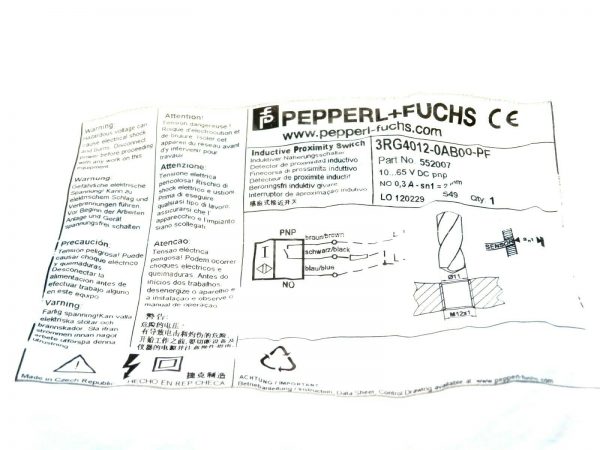 Warning:
Hazardous voltage can
cause electrical shock
and burns. Disconnect
power before proceeding
with any work on this
equipment.
Warnung
Gefährliche elektrische
Spannung! Kann zu
elektrischem Schlag und
Verbrennungen führen
Vor Beginn der Arbeiten
Anlage und Gerät
spannungsfrei schalten
Precaución
Tensión peligrosa! Puede
causar choque eléctrico
y quemaduras.
Desconectar la
alimentación antes de
efectuar trabajo alguno
en este equipo.
Varning
Farlig spänning! Kan vålla
elektriska stötar och
brännskador. Slå ifrån
strömmen innan något
arbete utförs på denna
utrustning
Made in Czech Republic
Attention!
Tension dangereuse!
Risque d'électrocution et
de brûlure. Isoler cet
appareil du réseau avant
d'y intervenir pour
travaux
Attenzione:
Tensione elettrica
pericolosa! Rischio di
shock elettrici e ustioni
Prima di eseguire
qualsiasi tipo di lavoro
assicurarsi che l'
apparecchio e l'impianto
siano scollegati
Atencao:
Tensão eléctrica
perigosa! Podem ocorrer
choques electricos e
queimaduras. Antes do
inicios dos trabalhos
desenergize o aparelho e
a instalação e observe o
manual de operação.
警告:
HECHO EN REP CHECA
捷克制造
PEPPERL+FUCHS CE
www.pepperl-fuchs.com
Inductive Proximity Switch
Induktiver Näherungsschalter
Détecteur de proximité inductif
Finecorsa di prossimità induttivo
Detector de proximidad inductivo
Beröringsfri induktiv givare
Interruptor de aproximação indutivo
感应式接近开关
3RG4012-0AB00-PF
Part No 552007
10...65 V DC pnp
NO 0,3 A - sn1 = 2 mm
LO 120229 549 Qty: 1
PNP
braun/brown
schwarz/black
blau/blue
NO
L+
L-
Ø11
M12x1
ACHTUNG / IMPORTANT
Betriebsanleitung / Instruction, Data Sheet, Control Drawing available at www.pepperl-fuchs.com